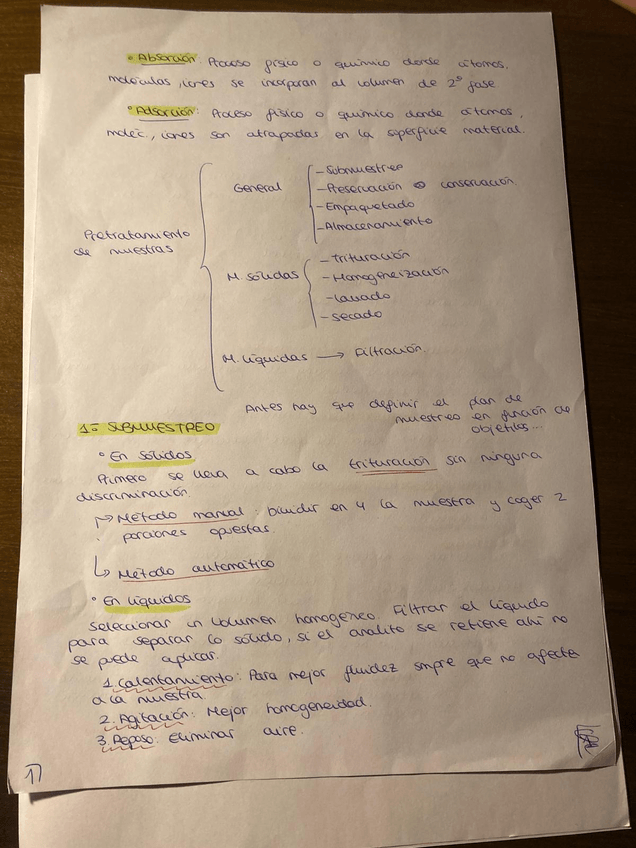 ° Absorción: Proceso físico o químico donde átomos,
moléculas, iones se incorporan al volumen de 2ª fase
° Adsorción: Proceso físico o químico donde átomos,
moléc., iones son atrapadas en la superficie material.
Pretratamiento
de muestras
General
- Submuestreo
- Preservación o conservación
- Empaquetado
- Almacenamiento
M. sólidas
- Trituración
- Homogeneización
- Lavado
- Secado
M. líquidas → Filtración.
Antes hay que definir el plan de
muestreo en función de
objetivos...
1º SUBMUESTREO
° En sólidos
Primero se lleva a cabo la trituración sin ninguna
discriminación.
↳ Método manual: Dividir en 4 la muestra y coger 2
porciones opuestas.
↳ Método automático
° En líquidos
Seleccionar un volumen homogéneo. Filtrar el líquido
para separar lo sólido, si el analito se retiene ahí no
se puede aplicar.
1. Calentamiento: Para mejor fluidez smpre que no afecte
a la muestra.
2. Agitación: Mejor homogeneidad.
3. Reposo: Eliminar aire.
17